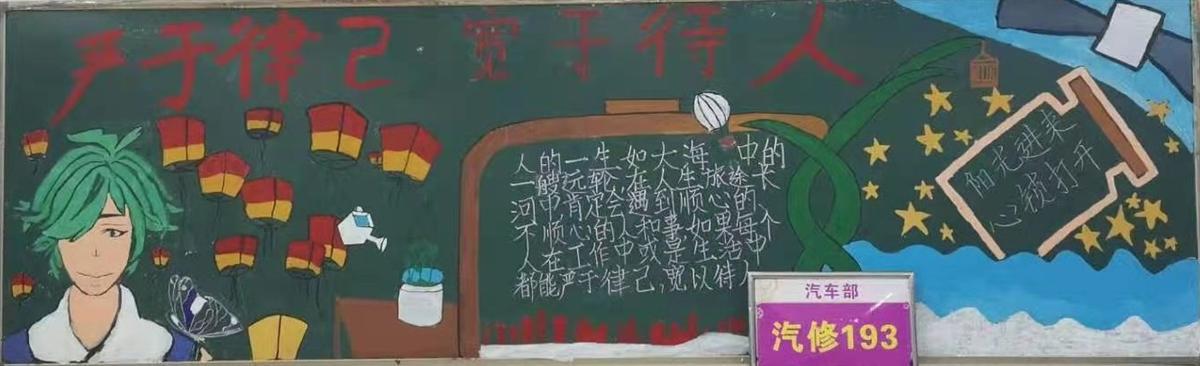 严于律己 宽于待人
人的一生如大海中的
一艘远轮，在人生旅途长
河中肯定会遇到顺心的
不顺心的人和事如果每个
人在工作中或是生活中
都能严于律己，宽以待人
阳光进来
心锁打开
汽车部
汽修193